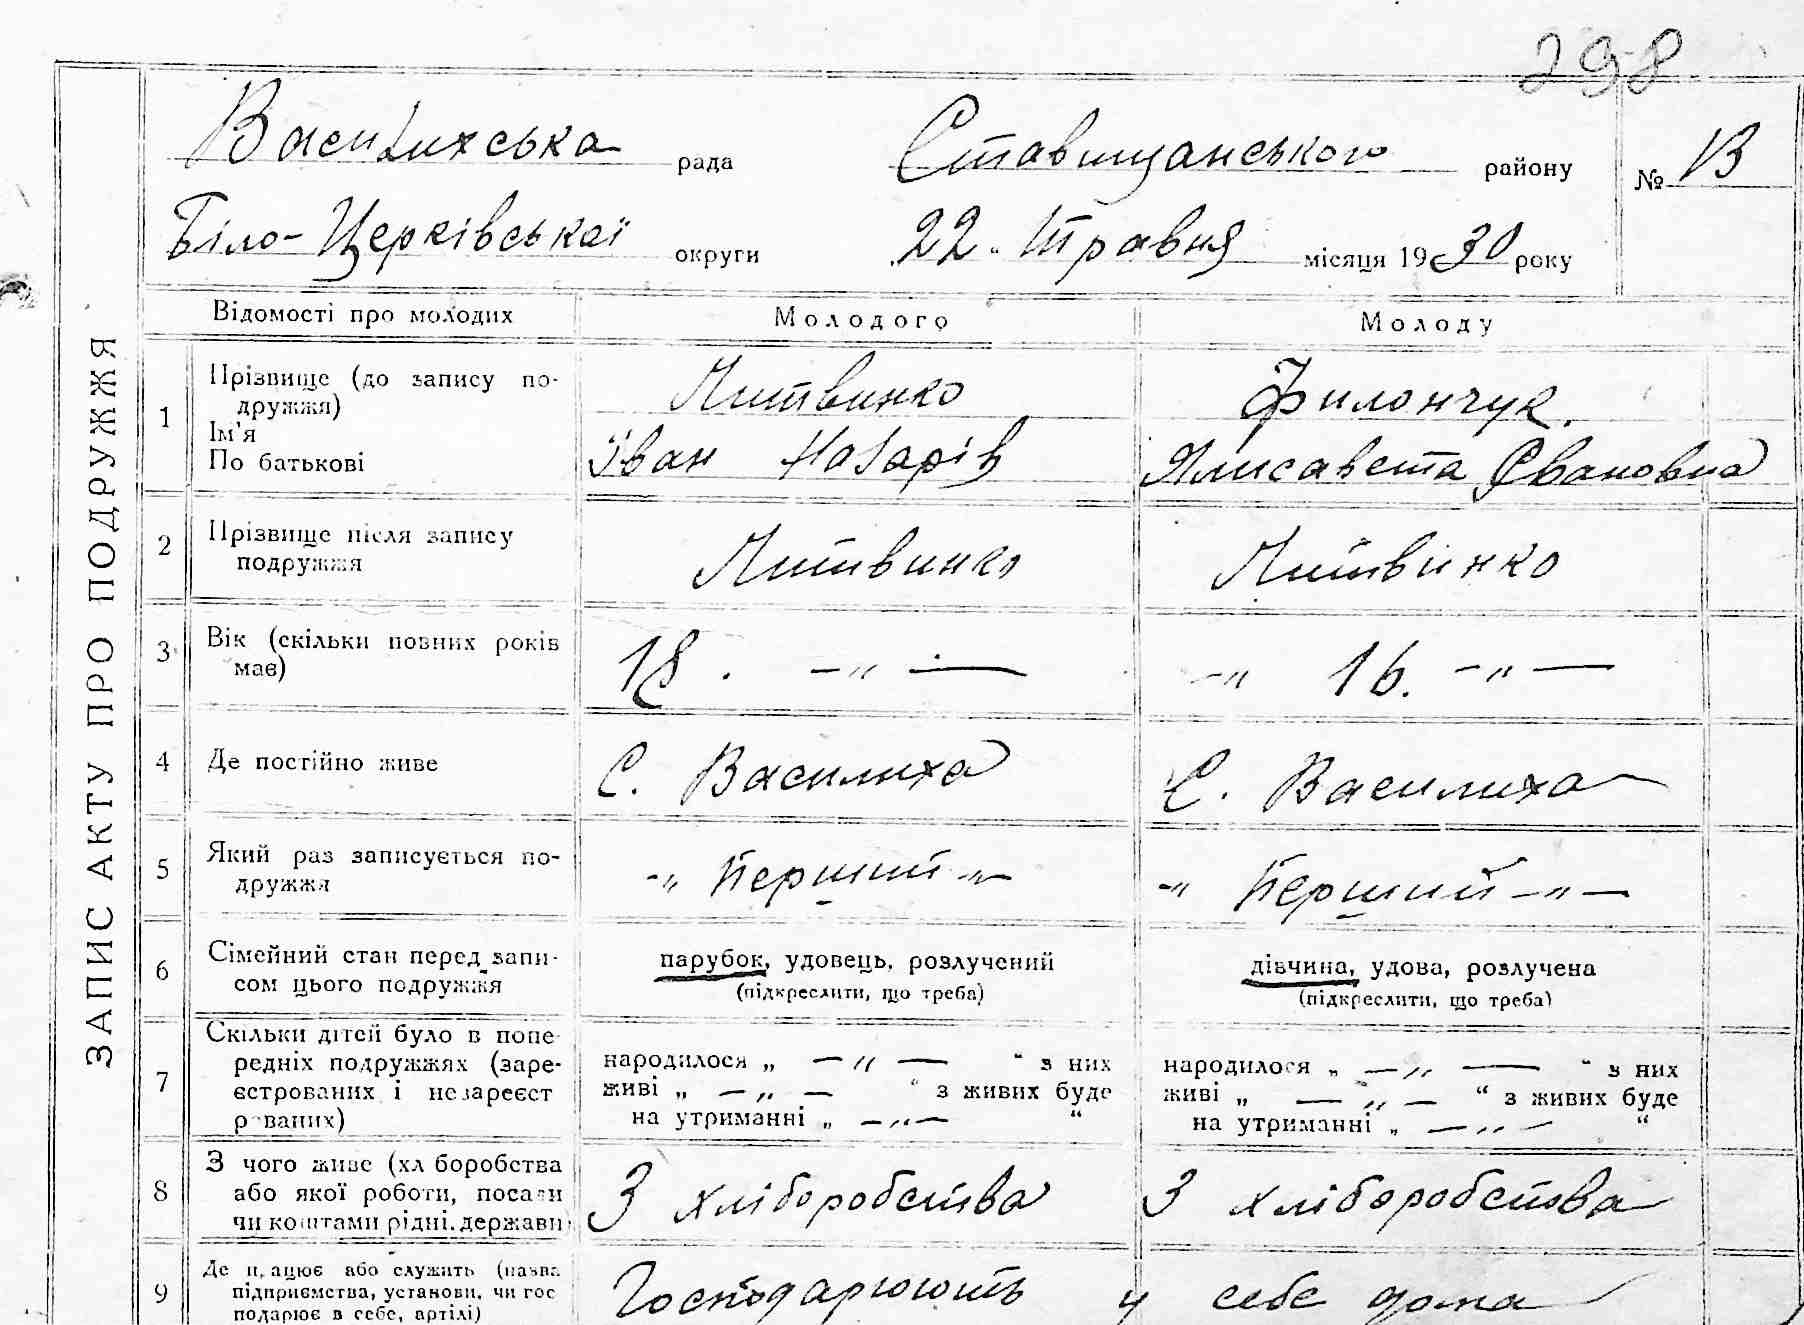 298
Василихська рада Ставищанського району № 13
Біло-Церківської округи 22. Травня місяця 1930 року
ЗАПИС АКТУ ПРО ПОДРУЖЖЯ
Відомості про молодих Молодого Молоду
1 Прізвище (до запису по-
дружжя) Литвинко Филончук.
Ім'я
По батькові Їван Назарів Ялисавета Євановна
2 Прізвище після запису
подружжя Литвинко Литвінко
3 Вік (скільки повних років
має) 18. — „ — — „ 16. — „ —
4 Де постійно живе С. Василиха С. Василиха
5 Який раз записується по-
дружжя -„ Перший -„- -„ Перший -„-
6 Сімейний стан перед запи-
сом цього подружжя
парубок, удовець, розлучений дівчина, удова, розлучена
(підкреслити, що треба) (підкреслити, що треба)
7 Скільки дітей було в попе-
редніх подружжях (заре-
єстрованих і незареєст
рованих)
народилося „ — „ — “ з них народилося „ — „ — “ з них
живі „ — „ — “ з живих буде живі „ — „ — “ з живих буде
на утриманні „ — „ — “ на утриманні „ — „ — “
8 З чого живе (хл боробства
або якої роботи, посади
чи коштами рідні. держави)
З хліборобства З хліборобства
9 Де працює або служить (назва
підприємства, установи, чи гос
подарює в себе, артілі)
Господарюють у себе дома